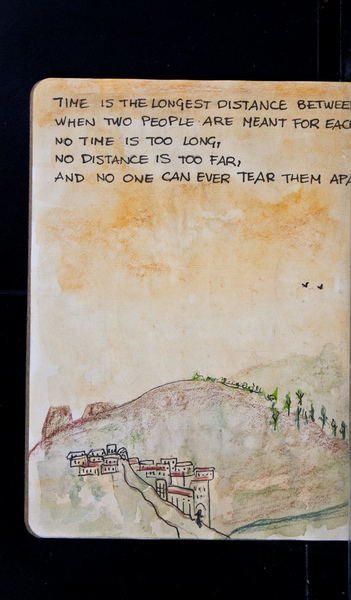 TIME IS THE LONGEST DISTANCE BETWEE
WHEN TWO PEOPLE ARE MEANT FOR EAC
NO TIME IS TOO LONG,
NO DISTANCE IS TOO FAR,
AND NO ONE CAN EVER TEAR THEM APA